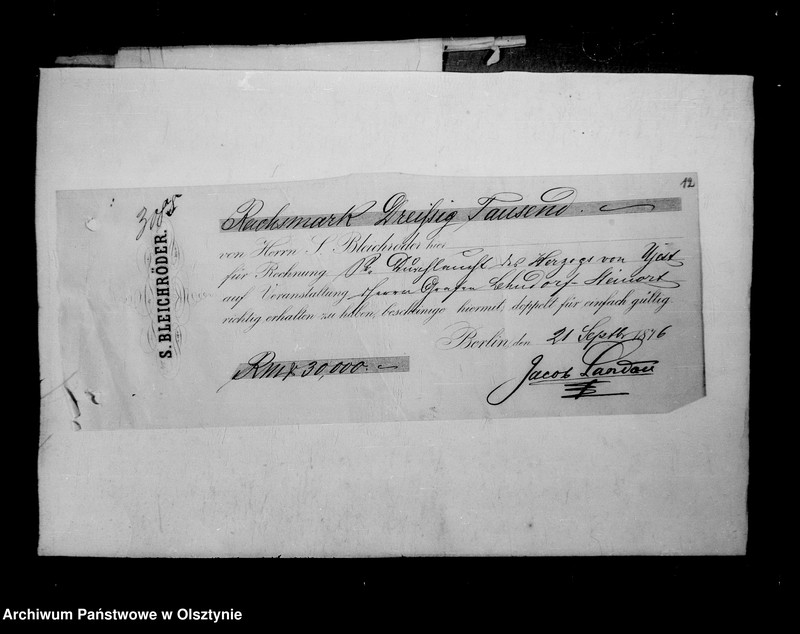 12
3085
S. BLEICHRÖDER.
Reichsmark Dreißig Tausend.
von Herrn S. Bleichröder hier
für Rechnung Sr. Durchlaucht des Herzogs von Ujest
auf Veranstaltung Herrn Grafen Lehndorf-Steinort
richtig erhalten zu haben, bescheinige hiermit, doppelt für einfach gültig.
Berlin, den 21 Septb. 1876
Rmk 30,000.
Jacob Landau
Archiwum Państwowe w Olsztynie